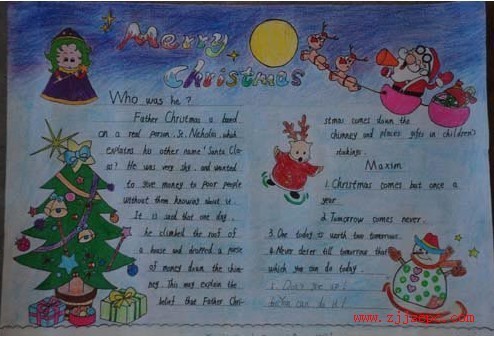 Merry
Christmas
Who was he?
Father Christmas is based
on a real person, St. Nicholas, which
explains his other name 'Santa Cla-
us'. He was very shy and wanted
to give money to poor people
without them knowing about it.
It is said that one day,
he climbed the roof of
a house and dropped a purse
of money down the chim-
ney. This may explain the
belief that Father Chri-
stmas comes down the
chimney and places gifts in children's
stockings.
Maxim
1. Christmas comes but once a
year.
2. Tomorrow comes never.
3. One today is worth two tomorrows.
4. Never defer till tomorrow that
which you can do today.
5. Don't give up!
6. You can do it!